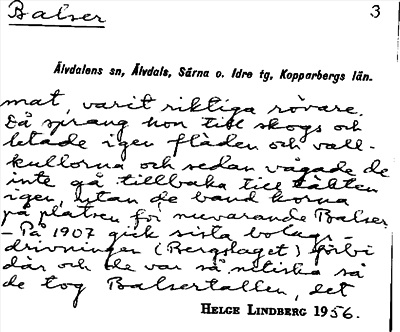 Balser 3
Älvdalens sn, Älvdals, Särna o. Idre tg, Kopparbergs län.
mat, varit riktiga rövare.
Då sprang hon till skogs och
letade igen fläden och vall-
kullorna och sedan vågade de
inte gå tillbaka till täkten
igen, utan de band korna
på platsen för nuvarande Balser.
- På 1907 gick sista bolags-
drivningen (Bergslaget) förbi
där och de var så nitiska så
de tog Balsertallen, det
HELGE LINDBERG 1956.